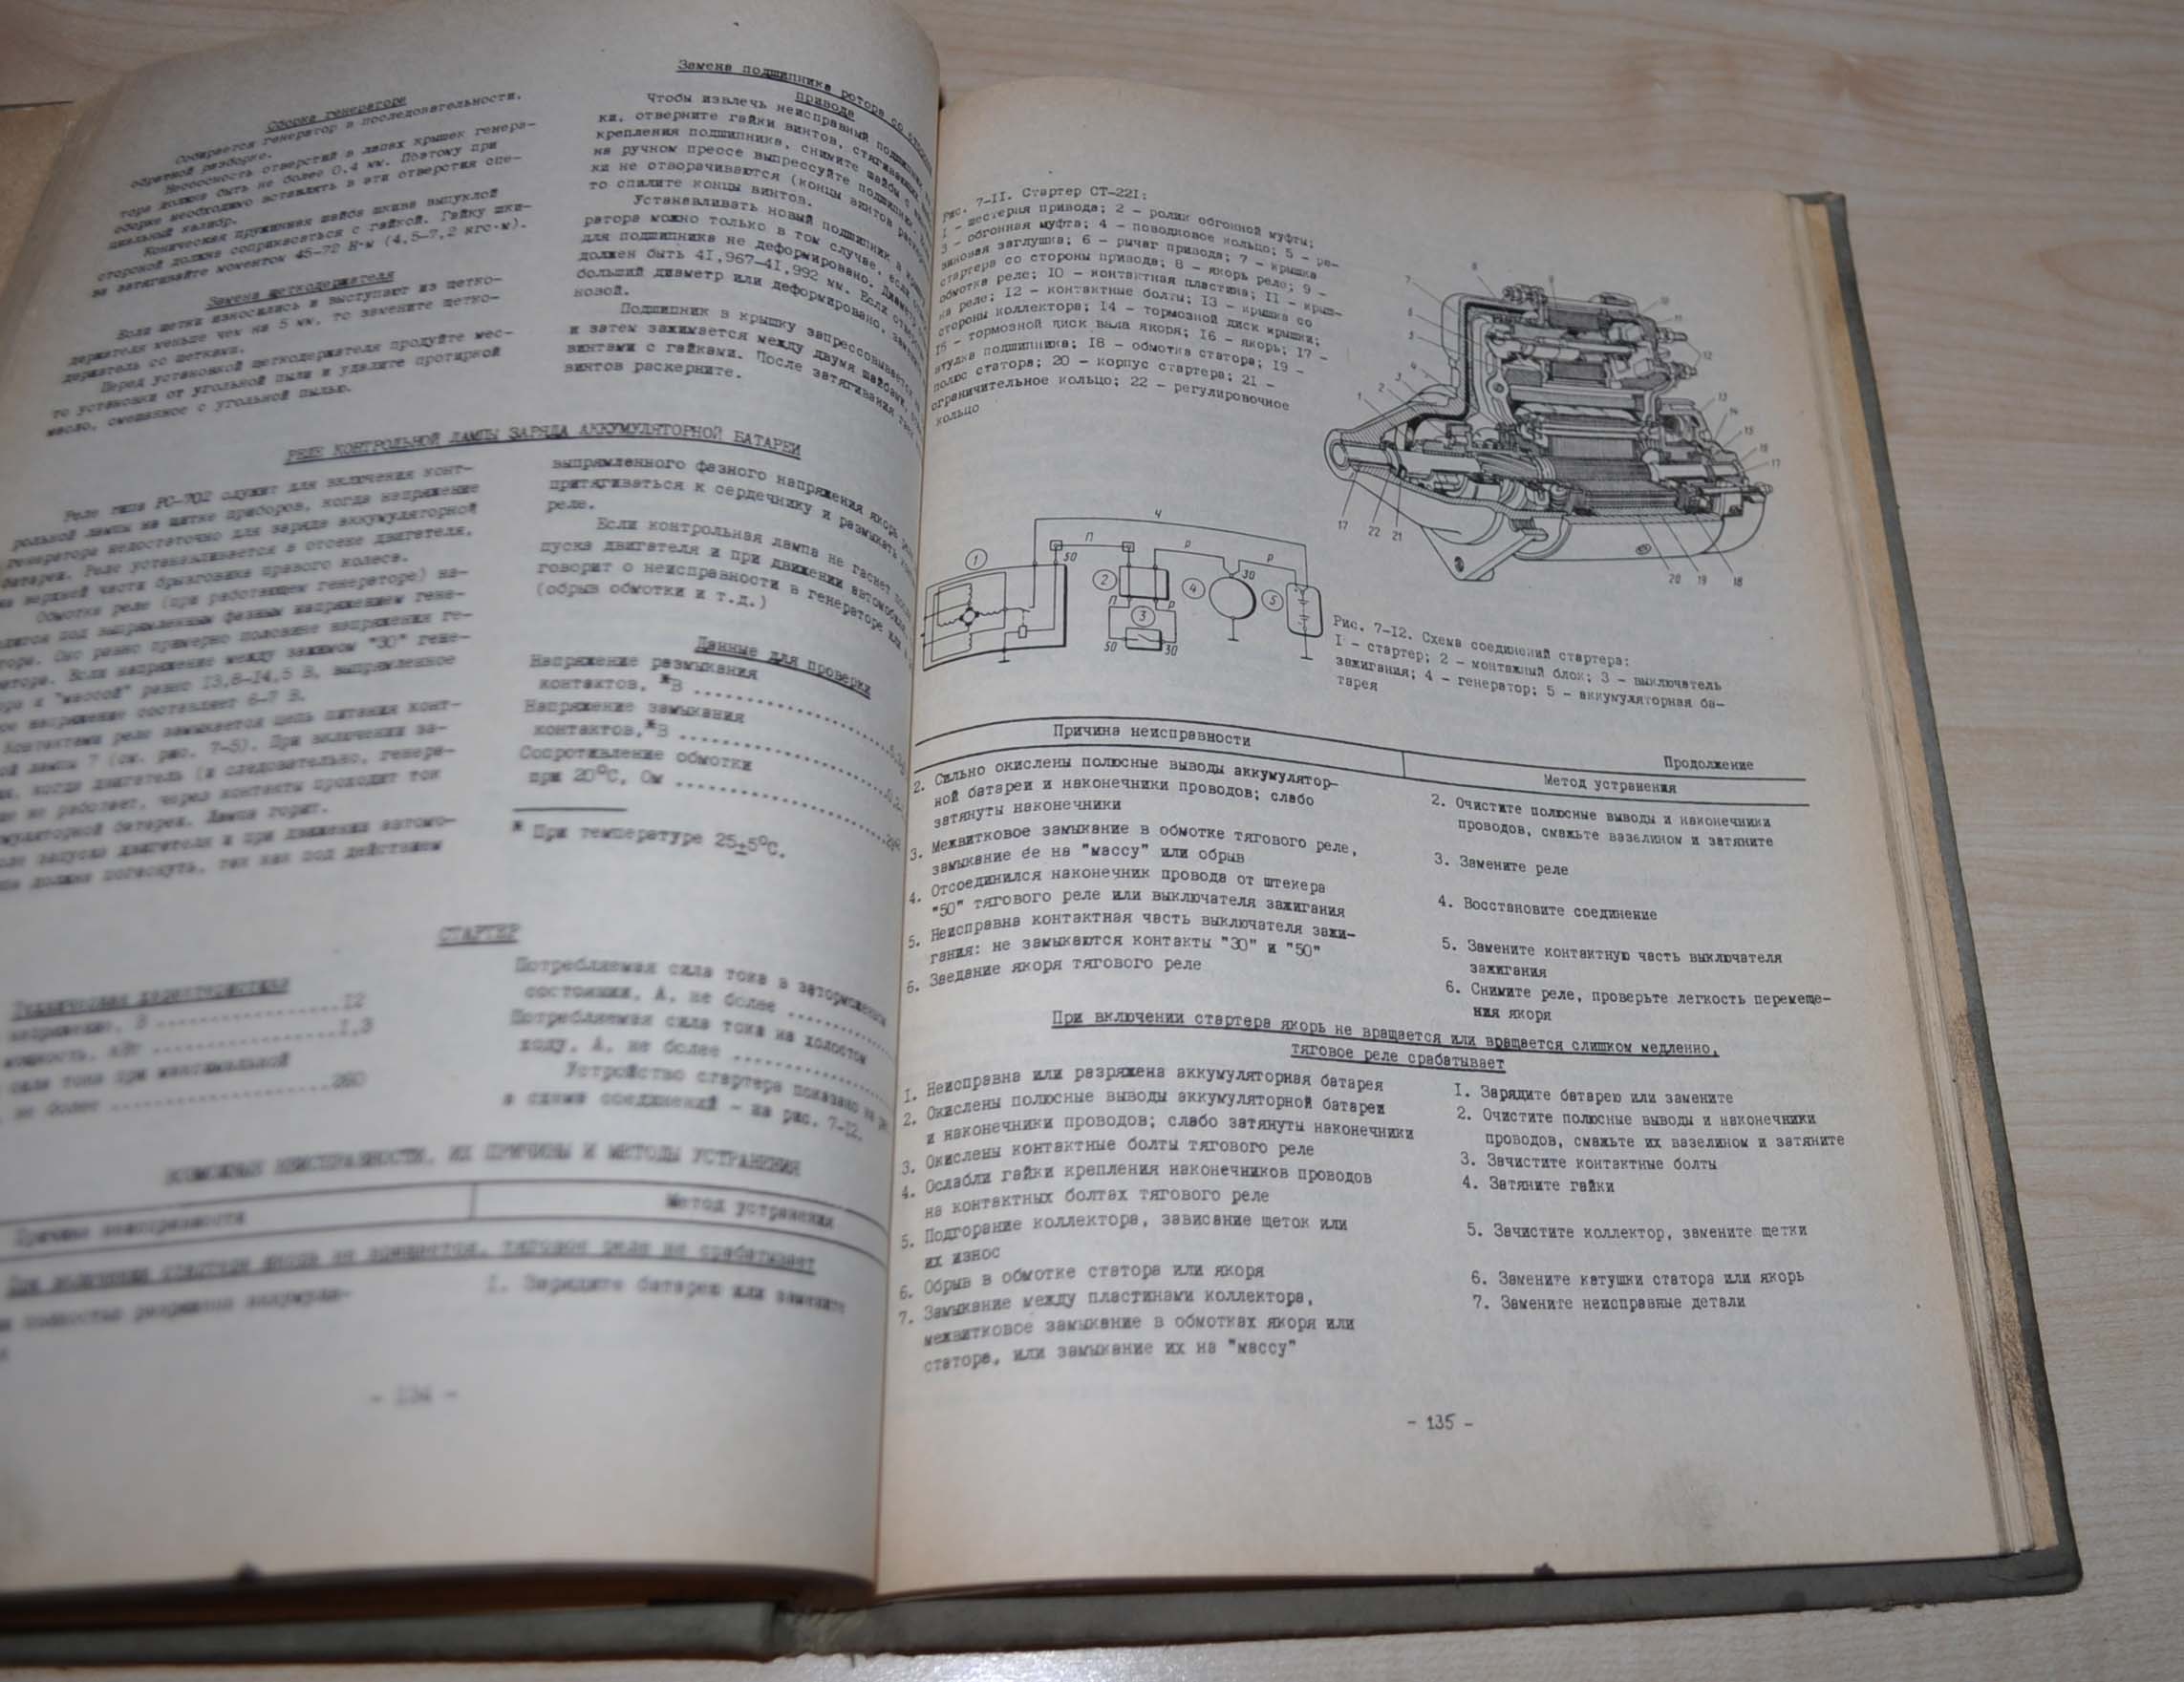 Сборка генератора
Собирается генератор в последовательности,
обратной разборке.
Несоосность отверстий в лапах крышек генера-
тора должна быть не более 0,4 мм. Поэтому при
сборке необходимо вставлять в эти отверстия спе-
циальный калибр.
Коническая пружинная шайба шкива выпуклой
стороной должна соприкасаться с гайкой. Гайку шки-
ва затягивайте моментом 45-72 Н·м (4,5-7,2 кгс·м).
Замена щеткодержателя
Если щетки износились и выступают из щетко-
держателя меньше чем на 5 мм, то замените щетко-
держатель со щетками.
Перед установкой щеткодержателя продуйте мес-
то установки от угольной пыли и удалите протиркой
масло, смешанное с угольной пылью.
Замена подшипника ротора со стороны
привода
Чтобы извлечь неисправный подшипник
ки, отверните гайки винтов, стягивающих
крепления подшипника, снимите шайбы с
на ручном прессе выпрессуйте подшипник.
ки не отворачиваются (концы винтов
то спилите концы винтов.
Устанавливать новый подшипник в
ратора можно только в том случае, если
для подшипника не деформировано. Диаметр
должен быть 41,967-41,992 мм. Если
больший диаметр или деформировано,
новой.
Подшипник в крышку запрессовывается
и затем зажимается между двумя шайбами,
винтами с гайками. После затягивания
винтов раскерните.
РЕЛЕ КОНТРОЛЬНОЙ ЛАМПЫ ЗАРЯДА АККУМУЛЯТОРНОЙ БАТАРЕИ
Реле типа РС-702 служит для включения конт-
рольной лампы на щитке приборов, когда напряжение
генератора недостаточно для заряда аккумуляторной
батареи. Реле устанавливается в отсеке двигателя,
на верхней части брызговика правого колеса.
Обмотка реле (при работающем генераторе) на-
ходится под выпрямленным фазным напряжением гене-
ратора. Оно равно примерно половине напряжения ге-
нератора. Если напряжение между зажимом "30" гене-
ратора и "массой" равно 13,8-14,5 В, выпрямленное
напряжение составляет 6-7 В.
Контактами реле замыкается цепь питания конт-
лампы 7 (см. рис. 7-5). При включении за-
когда двигатель (и следовательно, генера-
не работает, через контакты проходит ток
батареи. Лампа горит.
запуска двигателя и при движении автомо-
должна погаснуть, так как под действием
выпрямленного фазного напряжения якорь
притягиваться к сердечнику и размыкать
реле.
Если контрольная лампа не гаснет
пуска двигателя и при движении автомобиля,
говорит о неисправности в генераторе или
(обрыв обмотки и т.д.)
Данные для проверки
Напряжение размыкания
контактов,*В
Напряжение замыкания
контактов,*В
Сопротивление обмотки
при 20°С, Ом
* При температуре 25±5°С.
СТАРТЕР
Техническая характеристика
напряжение, В ..................12
мощность, кВт ..................1,3
сила тока при максимальной
не более ..................260
Потребляемая сила тока в заторможенном
состоянии, А, не более
Потребляемая сила тока на холостом
ходу, А, не более
Устройство стартера показано на
а схема соединений - на рис. 7-12.
ВОЗМОЖНЫЕ НЕИСПРАВНОСТИ, ИХ ПРИЧИНЫ И МЕТОДЫ УСТРАНЕНИЯ
Причина неисправности
Метод устранения
При включении стартера якорь не вращается, тяговое реле не срабатывает
полностью разряжена аккумуля-
1. Зарядите батарею или замените
- 134 -
Рис. 7-11. Стартер СТ-221:
1 - шестерня привода; 2 - ролик обгонной муфты;
3 - обгонная муфта; 4 - поводковое кольцо; 5 - ре-
зиновая заглушка; 6 - рычаг привода; 7 - крышка
стартера со стороны привода; 8 - якорь реле; 9 -
обмотка реле; 10 - контактная пластина; 11 - крыш-
ка реле; 12 - контактные болты; 13 - крышка со
стороны коллектора; 14 - тормозной диск крышки;
15 - тормозной диск вала якоря; 16 - якорь; 17 -
втулка подшипника; 18 - обмотка статора; 19 -
полюс статора; 20 - корпус стартера; 21 -
ограничительное кольцо; 22 - регулировочное
кольцо
7 8 9 10 11 12
6
5
4
3
2
1
13
14
15
16
17
17 22 21
20 19 18
Ч
П Р Р
1 50 2 4 30 5
П Р
3
50 30
Рис. 7-12. Схема соединений стартера:
1 - стартер; 2 - монтажный блок; 3 - выключатель
зажигания; 4 - генератор; 5 - аккумуляторная ба-
тарея
Продолжение
Причина неисправности
Метод устранения
2. Сильно окислены полюсные выводы аккумулятор-
ной батареи и наконечники проводов; слабо
затянуты наконечники
3. Межвитковое замыкание в обмотке тягового реле,
замыкание ее на "массу" или обрыв
4. Отсоединился наконечник провода от штекера
"50" тягового реле или выключателя зажигания
5. Неисправна контактная часть выключателя зажи-
гания: не замыкаются контакты "30" и "50"
6. Заедание якоря тягового реле
2. Очистите полюсные выводы и наконечники
проводов, смажьте вазелином и затяните
3. Замените реле
4. Восстановите соединение
5. Замените контактную часть выключателя
зажигания
6. Снимите реле, проверьте легкость перемеще-
ния якоря
При включении стартера якорь не вращается или вращается слишком медленно,
тяговое реле срабатывает
1. Неисправна или разряжена аккумуляторная батарея
2. Окислены полюсные выводы аккумуляторной батареи
и наконечники проводов; слабо затянуты наконечники
3. Окислены контактные болты тягового реле
4. Ослабли гайки крепления наконечников проводов
на контактных болтах тягового реле
5. Подгорание коллектора, зависание щеток или
их износ
6. Обрыв в обмотке статора или якоря
7. Замыкание между пластинами коллектора,
межвитковое замыкание в обмотках якоря или
статора, или замыкание их на "массу"
1. Зарядите батарею или замените
2. Очистите полюсные выводы и наконечники
проводов, смажьте их вазелином и затяните
3. Зачистите контактные болты
4. Затяните гайки
5. Зачистите коллектор, замените щетки
6. Замените катушки статора или якорь
7. Замените неисправные детали
- 135 -